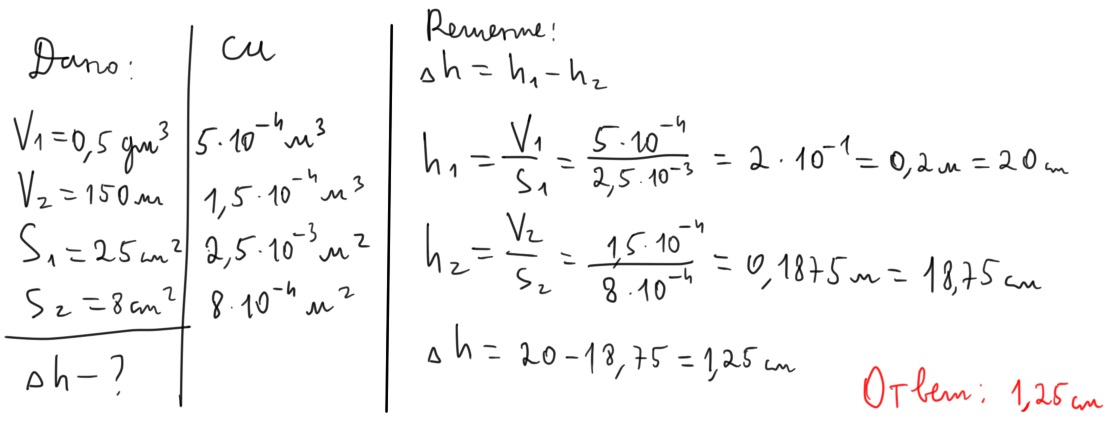 Дано:
V₁ = 0,5 дм³
V₂ = 150 м
S₁ = 25 см²
S₂ = 8 см²
Δh - ?
СИ
5·10⁻⁴ м³
1,5·10⁻⁴ м³
2,5·10⁻³ м²
8·10⁻⁴ м²
Решение:
Δh = h₁ - h₂
h₁ = V₁/S₁ = 5·10⁻⁴/2,5·10⁻³ = 2·10⁻¹ = 0,2 м = 20 см
h₂ = V₂/S₂ = 1,5·10⁻⁴/8·10⁻⁴ = 0,1875 м = 18,75 см
Δh = 20 - 18,75 = 1,25 см
Ответ: 1,25 см